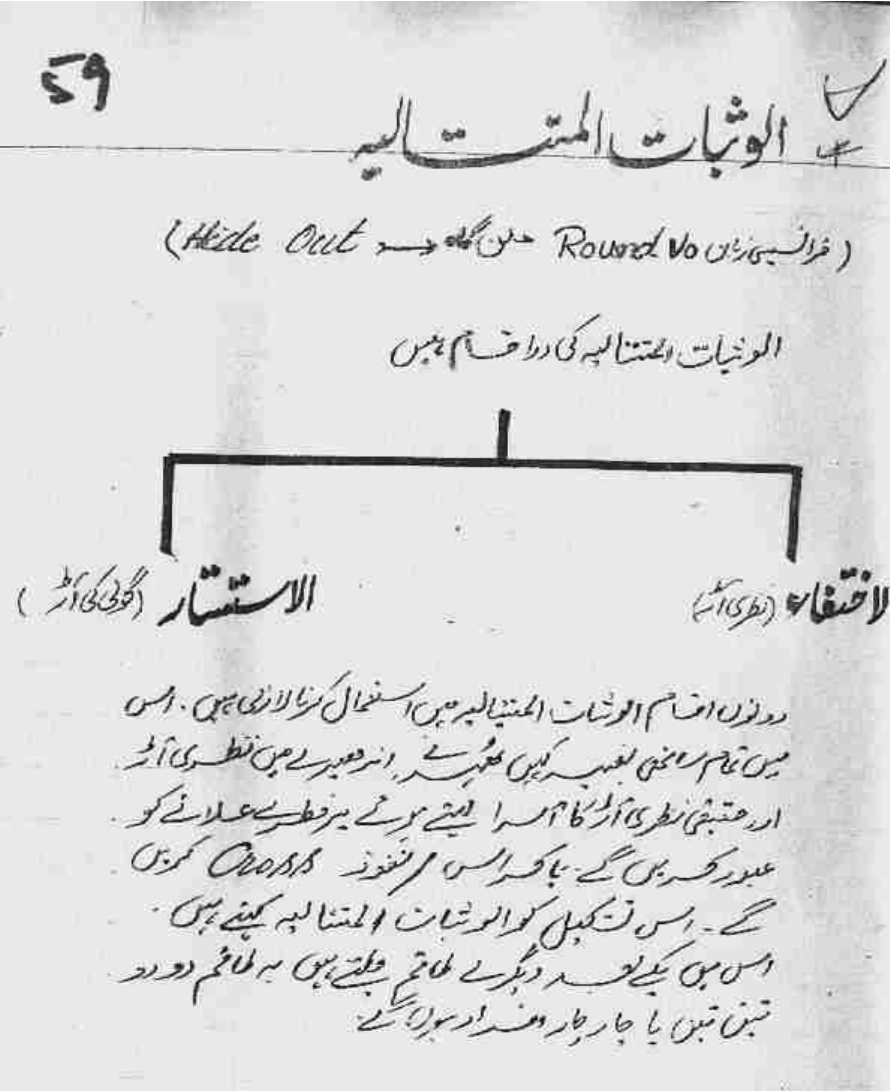 59
الوثبات المتتالیہ
(فرانسیسی زبان Round Vo ملن گاہ → Hide Out)
الوثبات المتتالیہ کی دو اقسام ہیں
الاختفاء (نظری آڑ)
الاستتار (گولی کی آڑ)
دونوں اقسام الوثبات المتتالیہ میں استعمال کرنا لازمی ہیں۔ اس
میں تمام ساتھی بغیر کہیں ٹھہرے اندھیرے میں نظری آڑ
اور حقیقی نظری آڑ کا آسرا لیتے ہوئے پر خطرے علاقے کو
عبور کریں گے یا کراس نفوذ Cross کریں
گے۔ اس تشکیل کو الوثبات المتتالیہ کہتے ہیں۔
اس میں یکے بعد دیگرے طاقم چلتے ہیں یہ طاقم دو دو
تین تین یا چار چار افراد ہوں گے۔